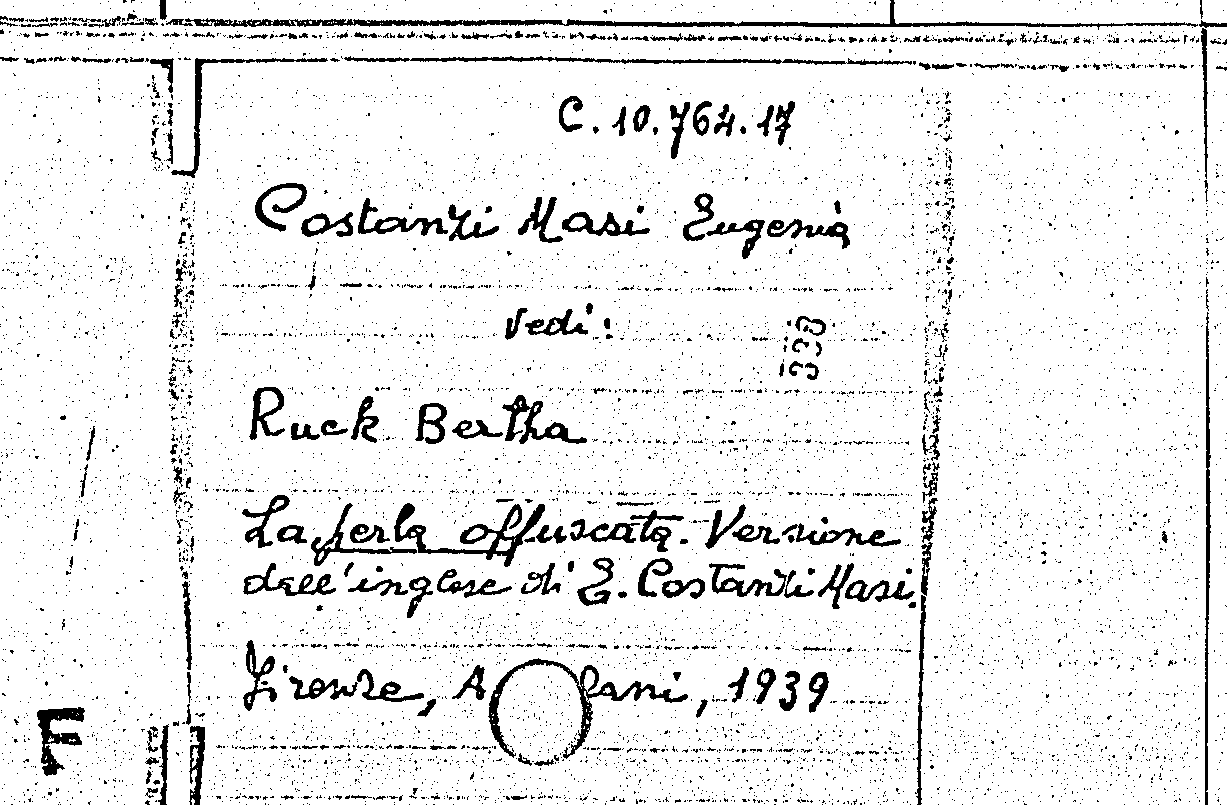 C. 10.764.17
Costanzi Masi Eugenia
vedi:
333
Ruck Bertha
La perla offuscata. Versione
dall'inglese di E. Costanzi Masi.
Firenze, A lani, 1939
F